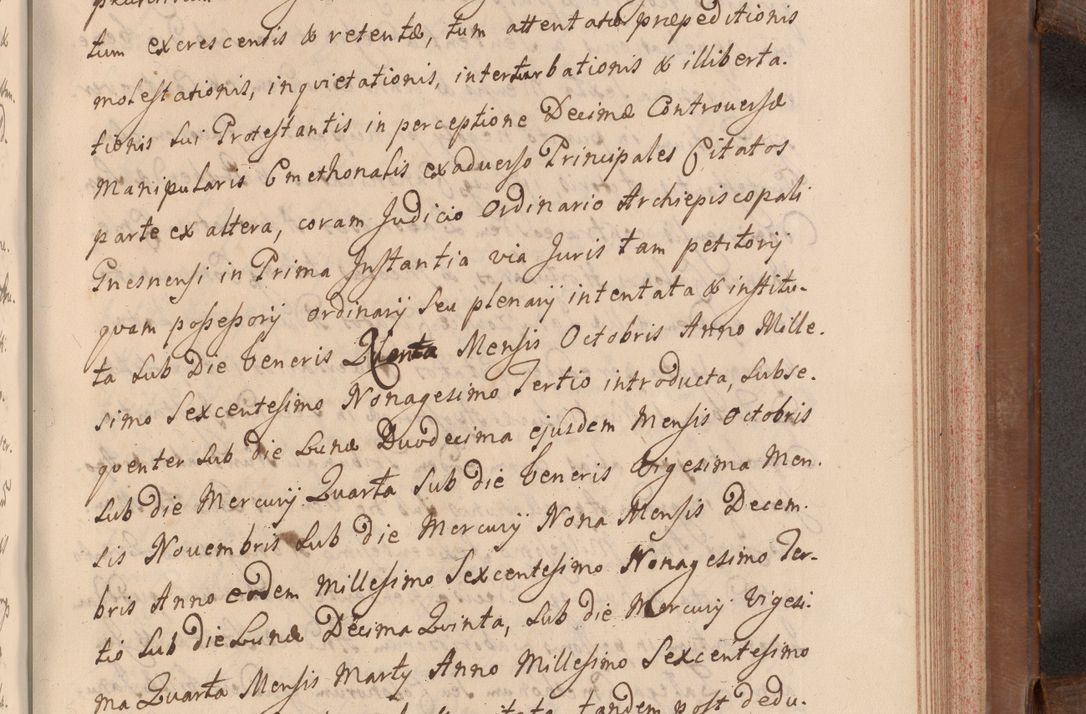 tum excrescentis & retentæ, tum attentatæ præpeditionis
molestationis, inquietationis, interturbationis & illiberta-
tionis sui Protestantis in perceptione Decimæ Controversæ
Manipularis Cmethonalis exadverso Principales Citatos
parte ex altera, coram Judicio Ordinario Archiepiscopali
Gnesnensi in Prima Instantia via Juris tam petitorij
quam possessorij ordinarij seu plenarij intentata & institu-
ta sub Die Veneris Mensis Octobris Anno Mille-
simo Sexcentesimo Nonagesimo Tertio introducta, subse-
quenter sub die Lunæ Duodecima ejusdem Mensis Octobris
sub die Mercurij Quarta sub die Veneris Vigesima Men-
sis Novembris sub die Mercurij Nona Mensis Decem-
bris Anno eodem Millesimo Sexcentesimo Nonagesimo Ter-
tio sub die Lunæ Decima Quinta, sub die Mercurij Vigesi-
ma Quarta Mensis Martij Anno Millesimo Sexcentesimo
tandem post dedu-